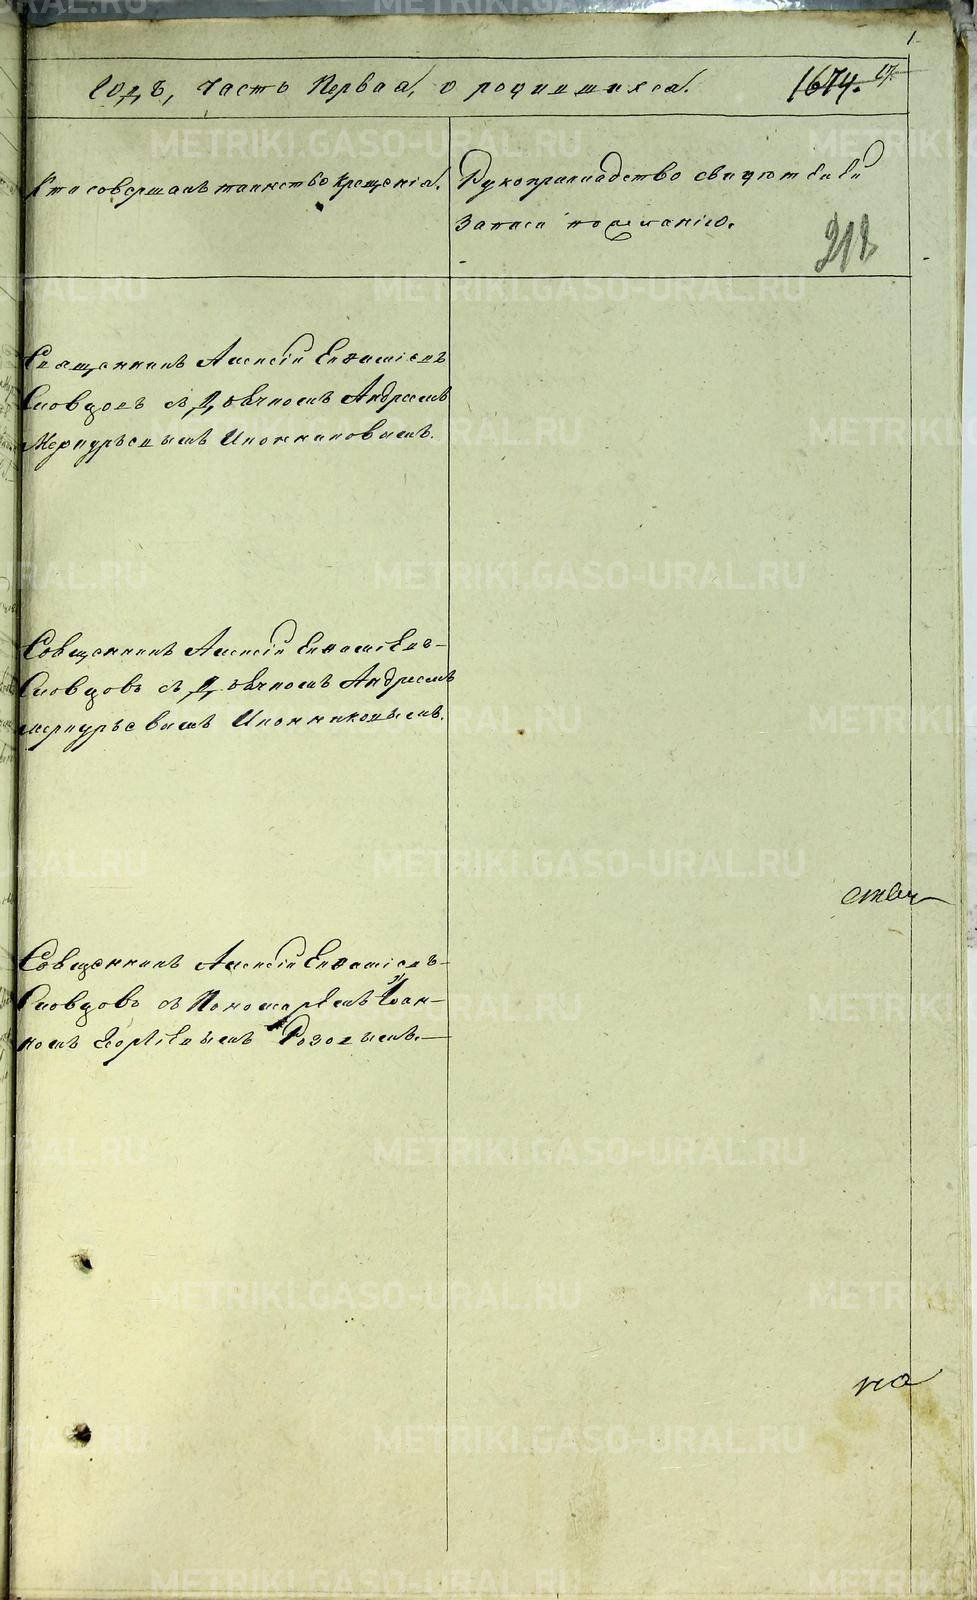 1
Годъ, Часть Первая, о родившихся. 1674.
Кто совершалъ таинство крещенія. Рукоприкладство свидѣтелей
записи по желанію.
212
Священникъ Алексій Евфаміевъ
Словцовъ съ Дьячкомъ Андреемъ
Меркурьевымъ Иконниковымъ.
Священникъ Алексій Евфаміевъ
Словцовъ съ Дьячкомъ Андреемъ
меркурьевымъ Иконниковымъ.
Священникъ Алексій Евфаміевъ
Словцовъ съ Пономаремъ Іоан-
номъ Розовымъ.
на
METRIKI.GASO-URAL.RU